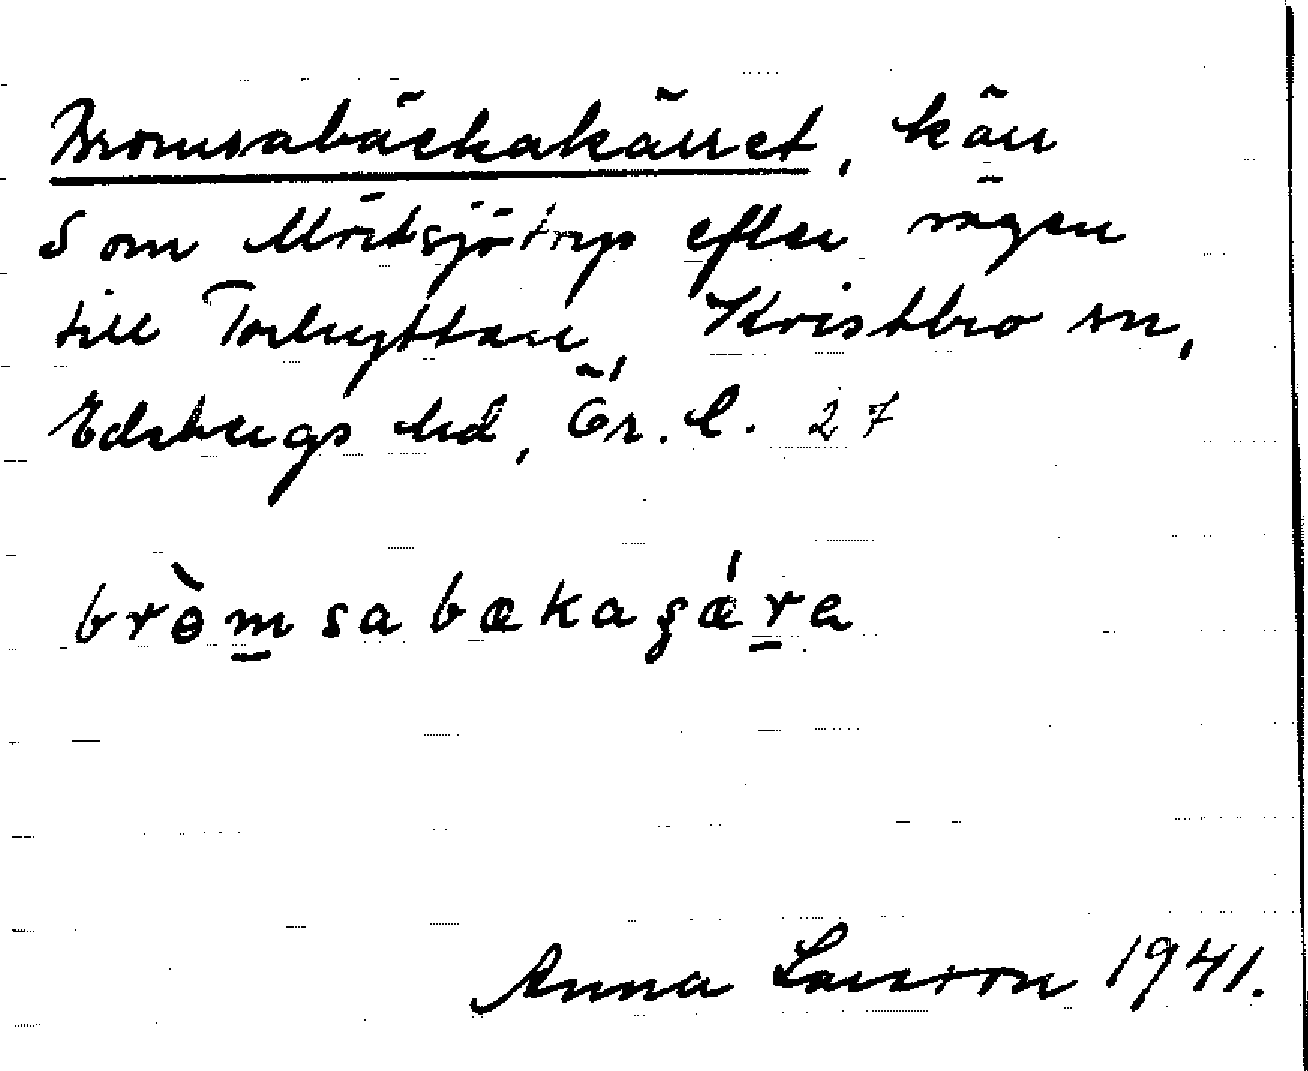 Bromsabäckakärret, kärr
S om Mörtsjötorp efter vägen
till Torhyttan, Kvistbro sn,
Edsbergs hd, Ör. l. 27
bròm̲sabækaʂǽr̲a
Anna Larsson 1941.